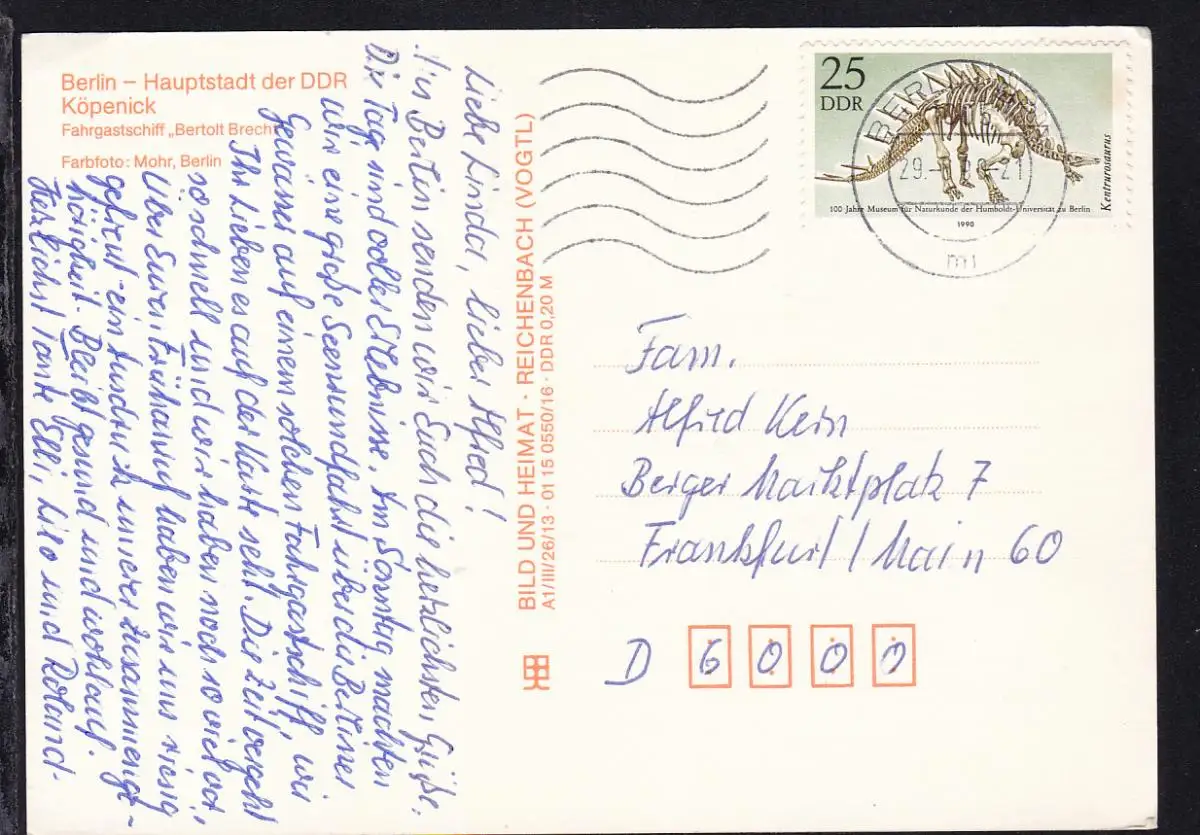 Berlin – Hauptstadt der DDR
Köpenick
Fahrgastschiff „Bertolt Brecht
Farbfoto: Mohr, Berlin
Liebe Linda, lieber Alfred!
Aus Berlin senden wir Euch die herzlichsten Grüße.
Die Tage sind voller Erlebnisse. Am Sonntag machten
wir eine große Seenrundfahrt über die Berliner
Gewässer auf einem solchen Fahrgastschiff wie
Ihr Lieben es auf der Karte seht. Die Zeit vergeht
so schnell und wir haben noch so viel vor,
Über Euren Anruf haben wir uns riesig
gefreut - ein Ausdruck unserer Zusammenge-
hörigkeit. Bleibt gesund und wohlauf.
Herzlichst Tante Elli, Lilo und Roland.
BILD UND HEIMAT · REICHENBACH (VOGTL)
A1/III/26/13 · 01 15 0550/16 · DDR 0,20 M
25
DDR
Kentrurosaurus
100 Jahre Museum für Naturkunde der Humboldt-Universität zu Berlin
1990
Fam.
Alfred Kern
Berger Marktplatz 7
Frankfurt / Main 60
D 6 0 0 0